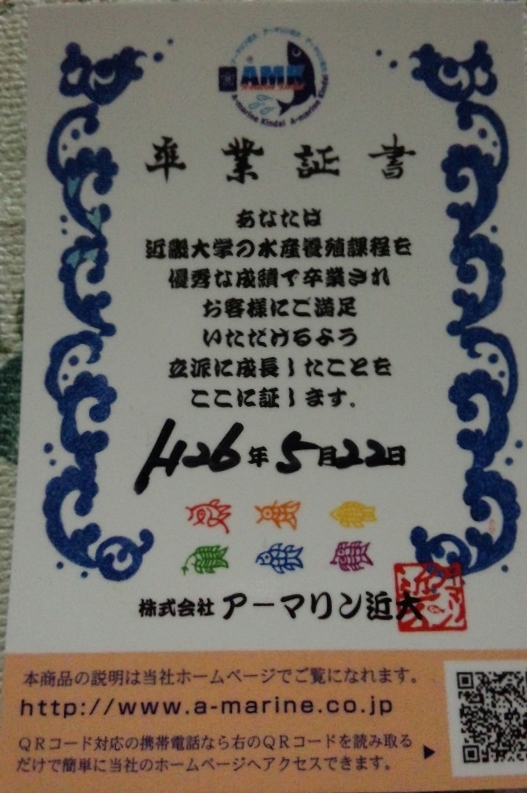 AMK
A-marine Kindai A-marine Kindai
卒業証書
あなたは
近畿大学の水産養殖課程を
優秀な成績で卒業され
お客様にご満足
いただけるよう
立派に成長したことを
ここに証します.
H26年5月22日
株式会社 アーマリン近大
本商品の説明は当社ホームページでご覧になれます。
http://www.a-marine.co.jp
QRコード対応の携帯電話なら右のQRコードを読み取る
だけで簡単に当社のホームページへアクセスできます。